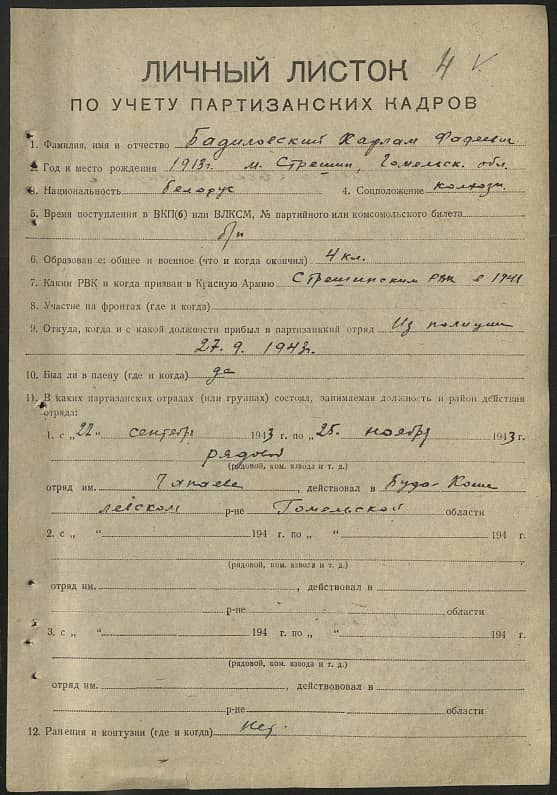 4 V
ЛИЧНЫЙ ЛИСТОК
ПО УЧЕТУ ПАРТИЗАНСКИХ КАДРОВ
1. Фамилия, имя и отчество Бадиловский Харлам Фадеевич
2. Год и место рождения 1913г. м. Стрешин, Гомельск. обл.
3. Национальность белорус 4. Соцположение колхозн.
5. Время поступления в ВКП(б) или ВЛКСМ, № партийного или комсомольского билета
б/п
6. Образован е: общее и военное (что и когда окончил) 4 кл.
7. Каким РВК и когда призван в Красную Армию Стрешинским РВК в 1941
8. Участие на фронтах (где и когда)
9. Откуда, когда и с какой должности прибыл в партизанкий отряд Из полиции
27.9.1943г.
10. Был ли в плену (где и когда) да
11. В каких партизанских отрядах (или группах) состоял, занимаемая должность и район действия
отряда:
1. с „22“ сентября 1943 г. по „25“ ноября 1943 г.
рядовой
(рядовой, ком. взвода и т. д.)
отряд им. Чапаева, действовал в Буда-Коше
левском р-не Гомельской области
2. с „ “ 194 г. по „ “ 194 г.
(рядовой, ком. взвода и т. д.)
отряд им. , действовал в
р-не области
3. с „ “ 194 г. по „ “ 194 г.
(рядовой, ком. взвода и т. д.)
отряд им. , действововал в
р-не области
12. Ранения и контузии (где и когда) нет.